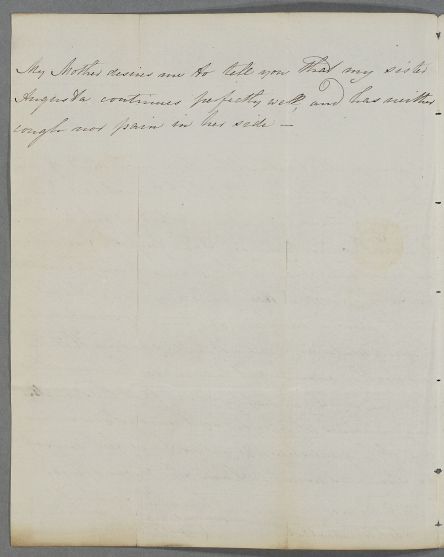 My Mother desires me to tell you that my sister
Augusta continues perfectly well, and has neither
cough nor pain in her side —